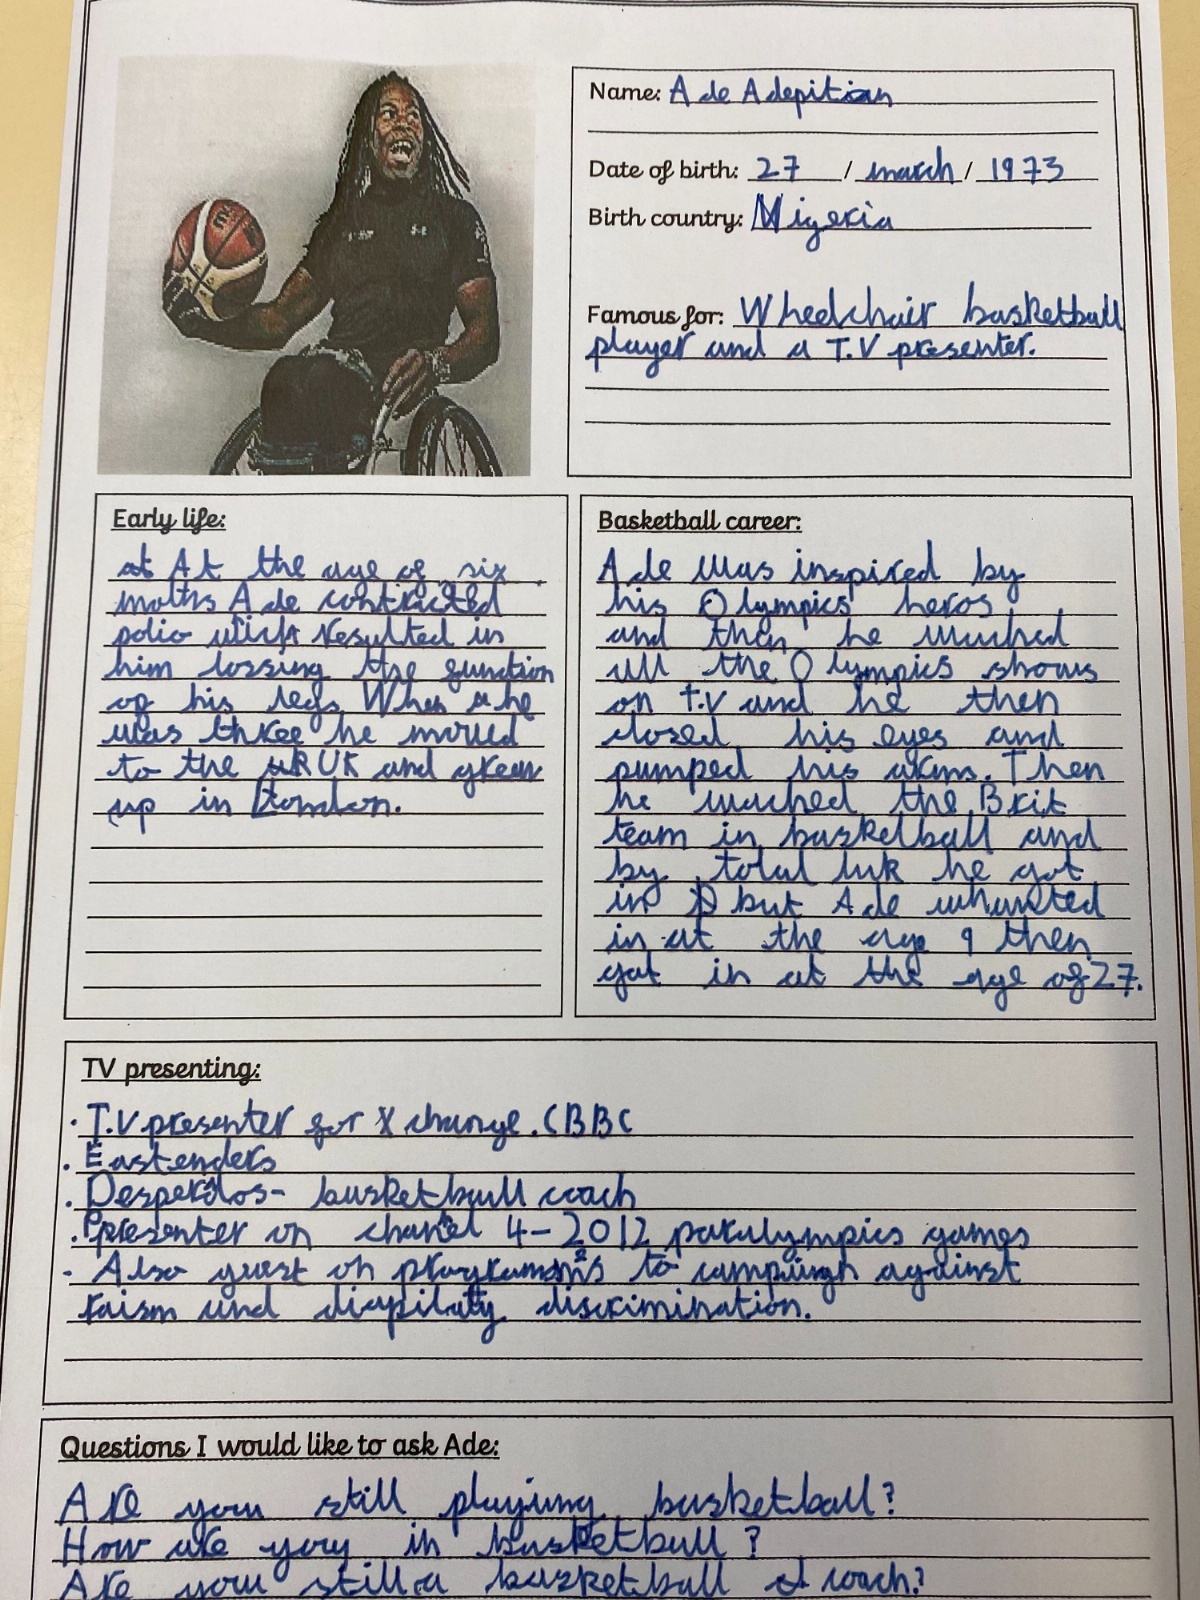 Name: Ade Adepitian
Date of birth: 27 / march / 1973
Birth country: Nigeria
Famous for: Wheelchair basketball
player and a T.V presenter.
Early life:
at At the age of six
moths Ade contricted
polio which resulted in
him lossing the function
of his legs When he
was three he moved
to the UK and grew
up in London.
Basketball career:
Ade was inspired by
his Olympics heros
and then he wached
all the Olympics shows
on T.V and he then
closed his eyes and
pumped his arms. Then
he wached the Brit
team in basketball and
by total luk he got
in but Ade whanted
in at the age 9 then
got in at the age of 27.
TV presenting:
· T.V presenter for X change. CBBC
· Eastenders
· Desperdos - basketball coach
· Presenter on chanel 4 - 2012 paralympics games
· Also guest on to campaign against
raism and diapilaty discrimination.
Questions I would like to ask Ade:
Are you still playing basketball?
How are yory in basketball?
Are you still a basketball coach?